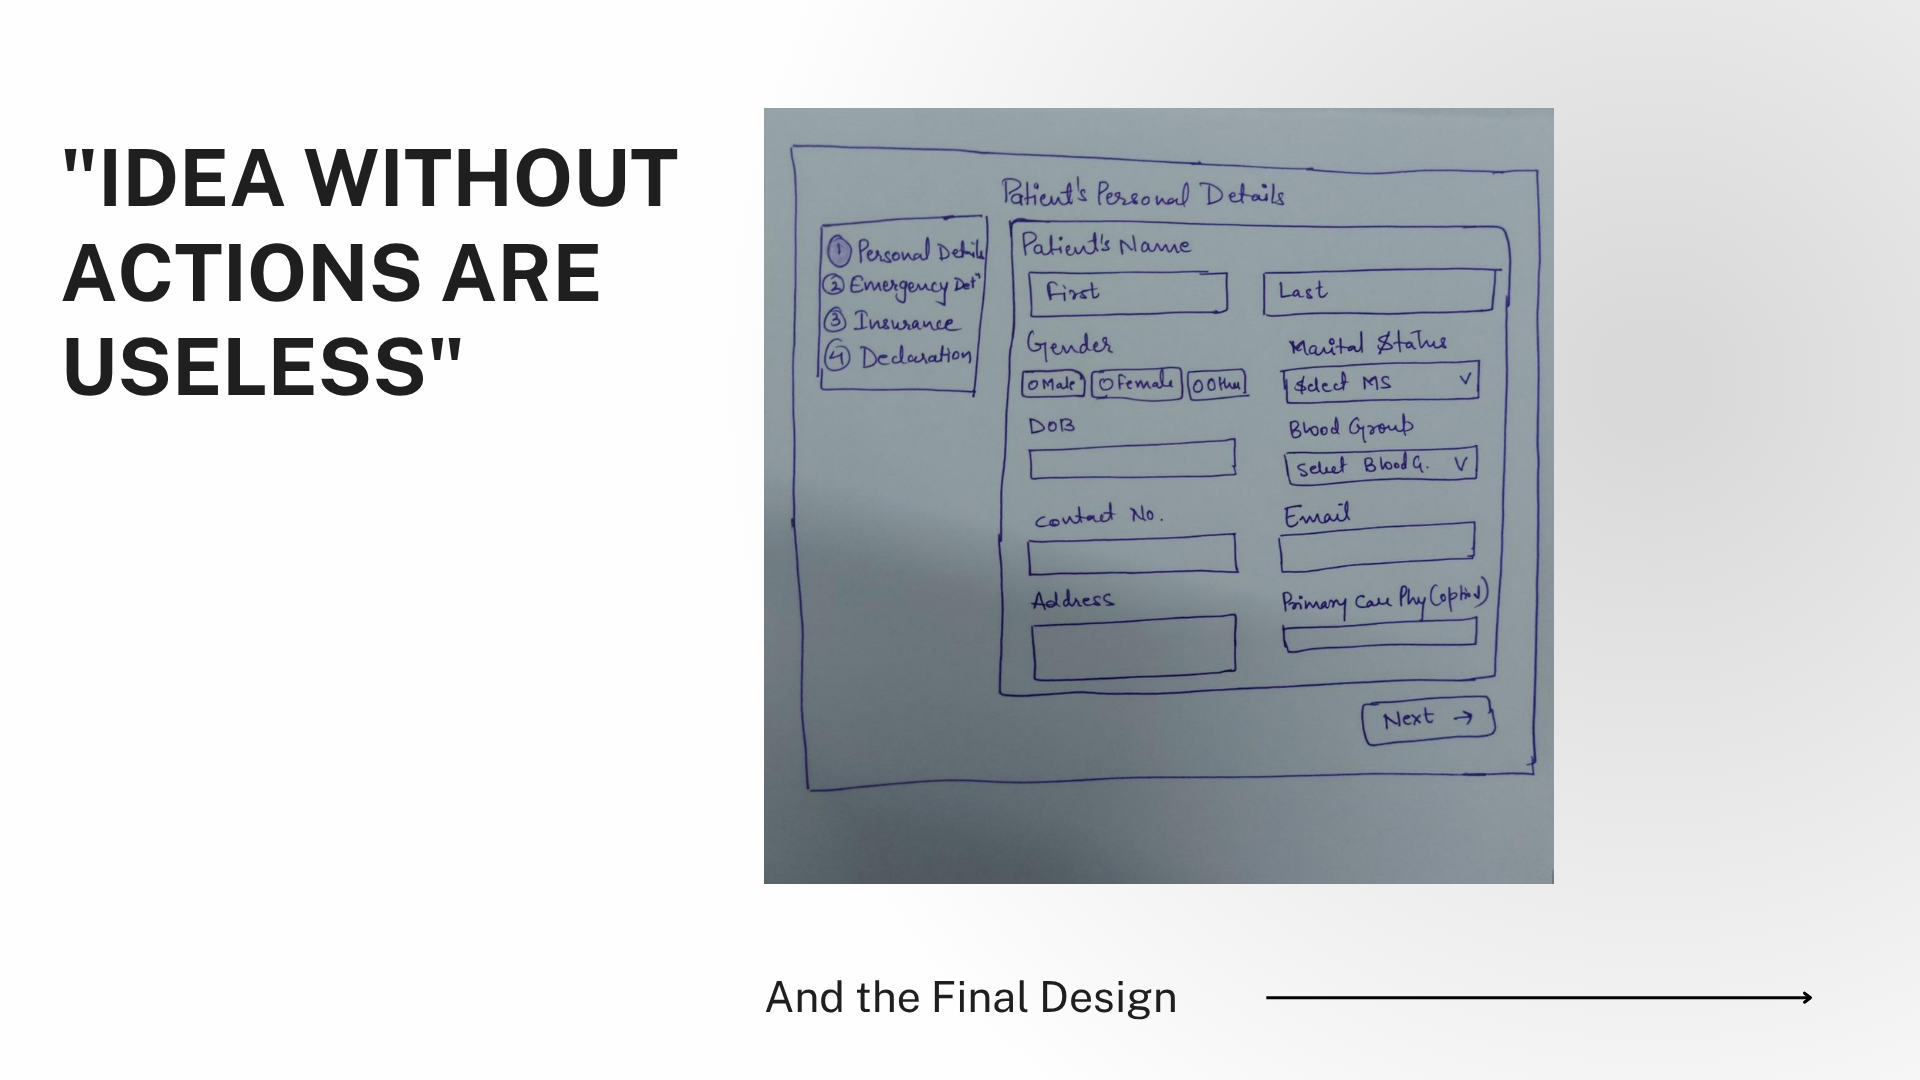 "IDEA WITHOUT
ACTIONS ARE
USELESS"
Patient's Personal Details
1 Personal Details
2 Emergency Det"
3 Insurance
4 Declaration
Patient's Name
First Last
Gender Marital Status
Male Female Other Select MS
DOB Blood Group
Select Blood G.
Contact No. Email
Address Primary Care Phy
Next →
And the Final Design